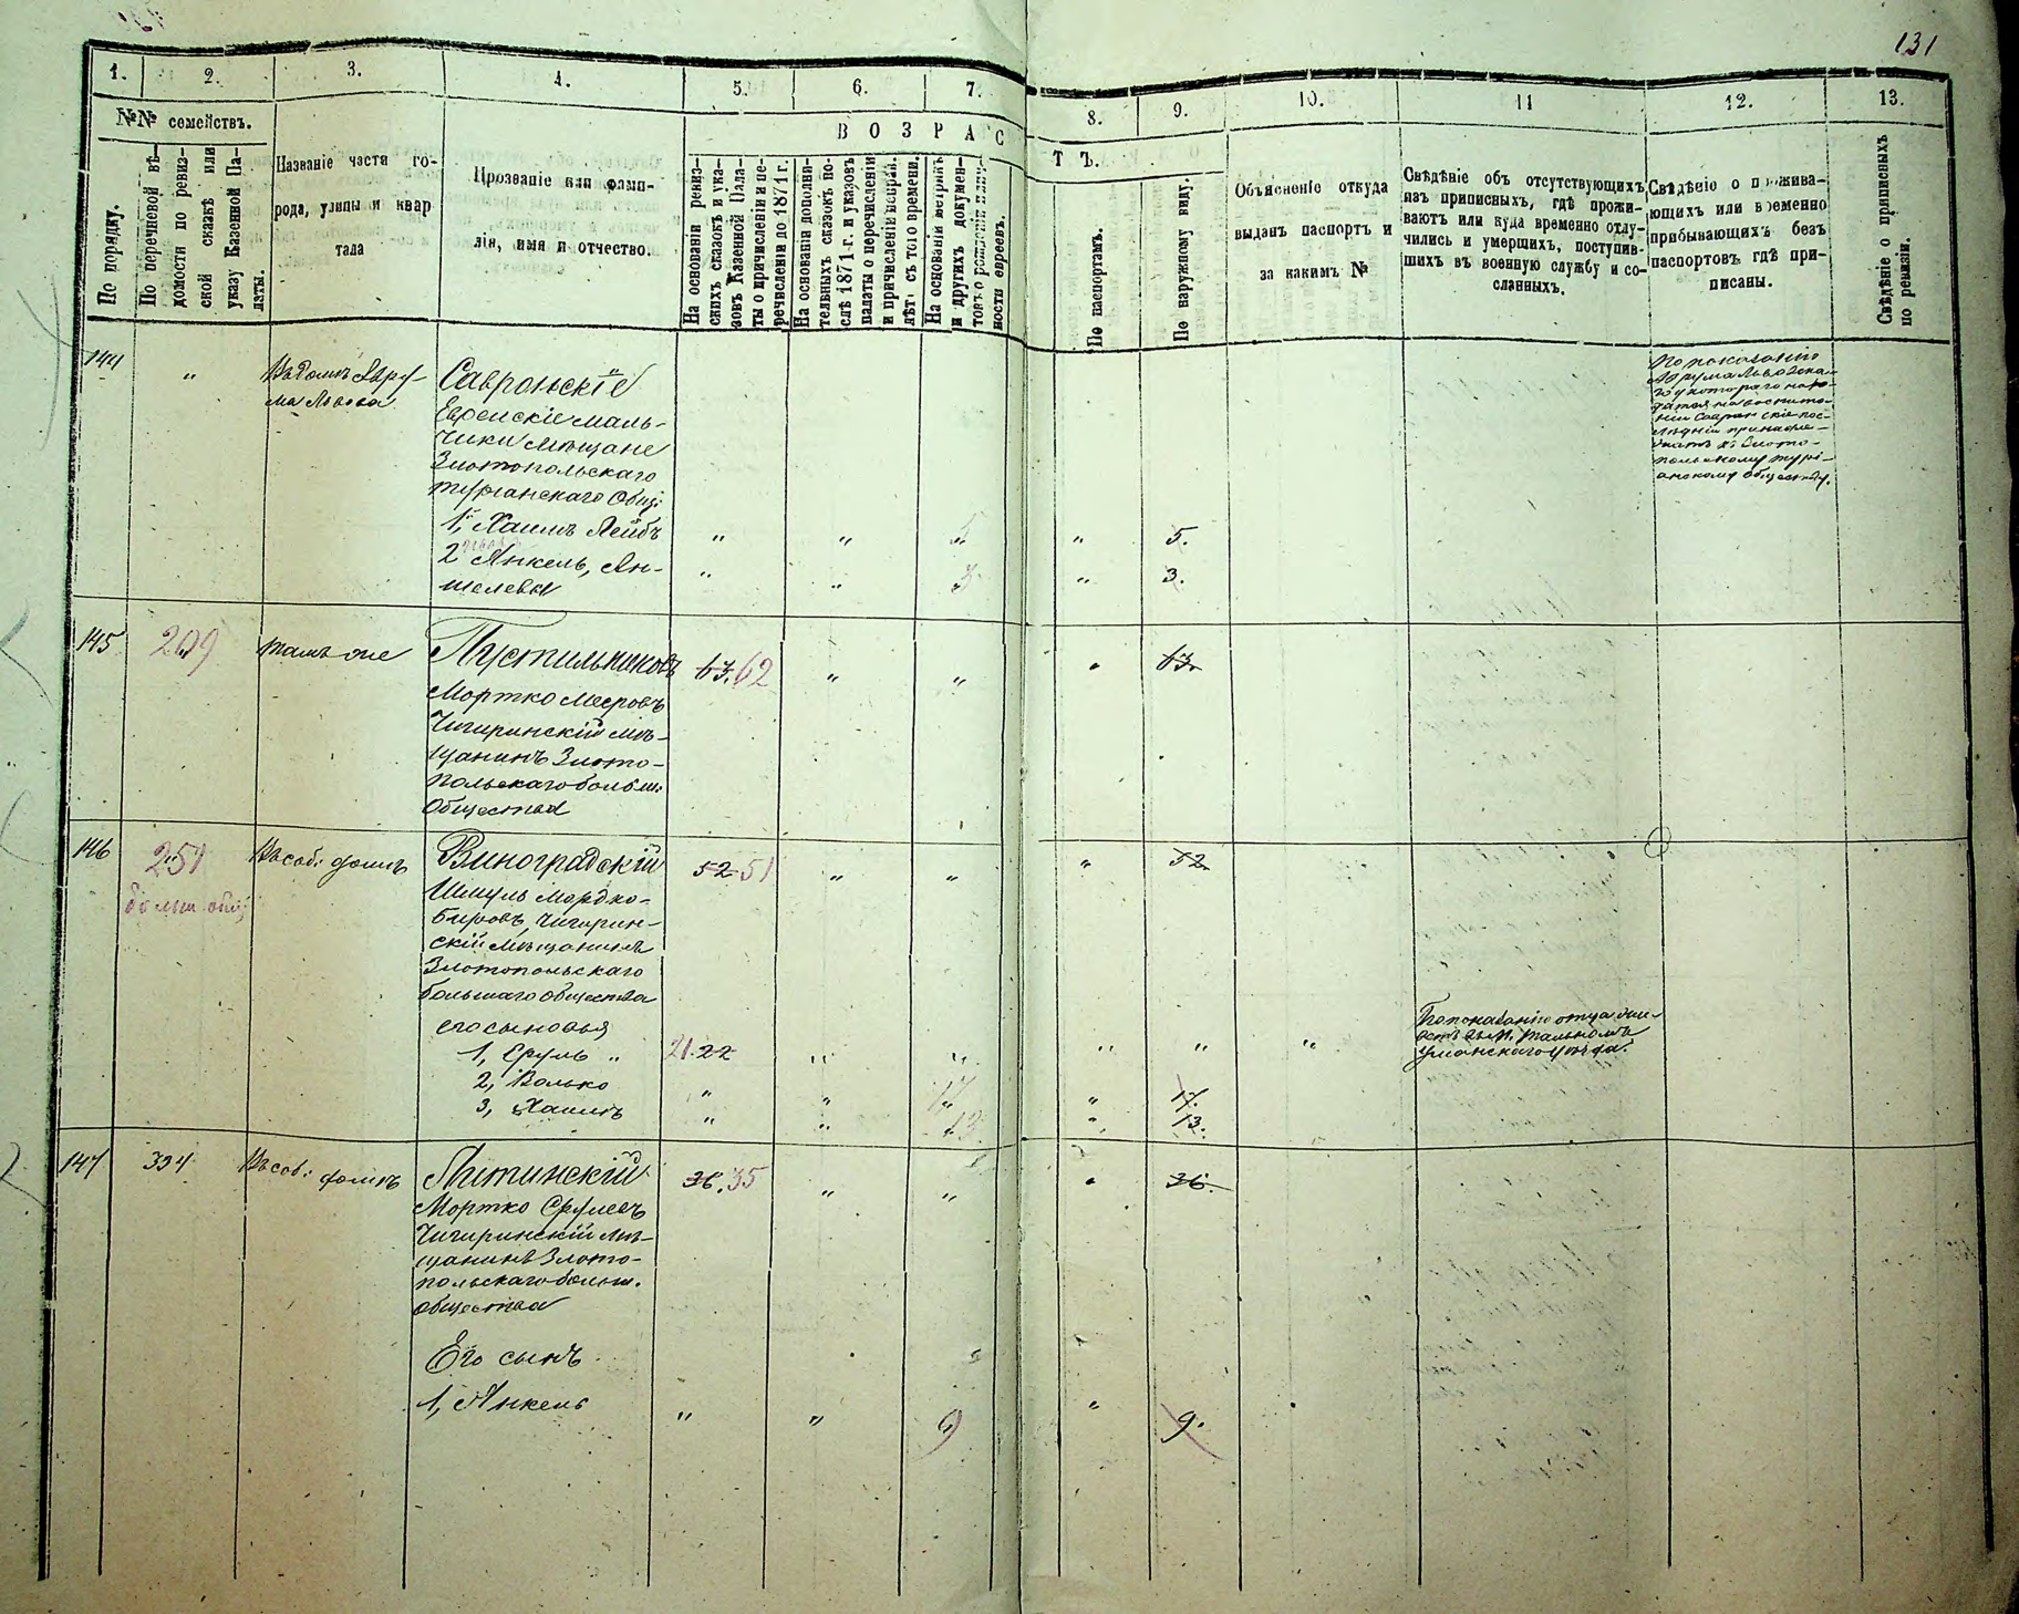 131
1.
2.
3.
4.
5.
6.
7.
8.
9.
10.
11
12.
13.
№№ семействъ.
ВОЗРАС
ТЪ.
По порядку.
По перечневой вѣ-
домости по ревиз-
ской сказкѣ или
указу Казенной Па-
латы.
Названіе части го-
рода, улицы и квар
тала
Прозваніе или фами-
лія, имя и отчество.
На основаніи ревиз-
скихъ сказокъ и ука-
зовъ Казенной Пала-
ты о причисленіи и пе-
речисленіи до 1871 г.
На основаніи дополни-
тельныхъ сказокъ по-
слѣ 1871 г. и указовъ
палаты о перечисленіи
и причисленіи неправ.
лѣт. съ того времени.
На основаніи метрикъ
и другихъ докумен-
товъ о рожденіи
ности евреевъ.
По паспортамъ.
По наружному виду.
Объясненіе откуда
выданъ паспортъ и
за какимъ №
Свѣдѣніе объ отсутствующихъ
изъ приписныхъ, гдѣ прожи-
ваютъ или куда временно отлу-
чились и умершихъ, поступив-
шихъ въ военную службу и со-
сланныхъ.
Свѣдѣніе о прожива-
ющихъ или временно
прибывающихъ безъ
паспортовъ гдѣ при-
писаны.
Свѣдѣніе о приписныхъ
по ревизіи.
144 "
Въ домѣ Авру-
ма Львова
Савронскіе
Еврейскіе маль-
чики мѣщане
Златопольскаго
турианскаго Общ:
1, Хаимъ Лейбъ " " " 5.
2 Янкель, Ан- " " " 3.
шелевы
По показанію
Аврума Львовска-
го у котораго нахо-
дятся на воспита-
ніи Савранскіе пос-
лѣдніи принадле-
жатъ къ Злото-
польскому тури-
анскому обществу.
145 209 тамъ же
Пустильниковъ 63. 62 " " 63.
Мортко Мееровъ
Чигиринскій мѣ-
щанинъ Злото-
польскаго больш.
Общества
146 251 Въ соб: домѣ
больш общ:
Виноградскій 52 51 " " " 52
Шмуль Мордко-
Беровъ, Чигирин-
скій мѣщанинъ
Златопольскаго
большаго общества
его сыновья
1, Сруль " 21. 22 " " " " "
2, Волько " " 17 " 17.
3, Хаимъ " " 13 " 13.
По показанію отца жи-
ветъ въ м. Тальномъ
Уманскаго уѣзда.
147 334 Въ соб: домѣ
Литинскій 36. 35 " " 36.
Мортко Срулевъ
Чигиринскій мѣ-
щанинъ Злото-
польскаго больш.
общества
Его сынъ
1, Янкель " " 9 " 9.